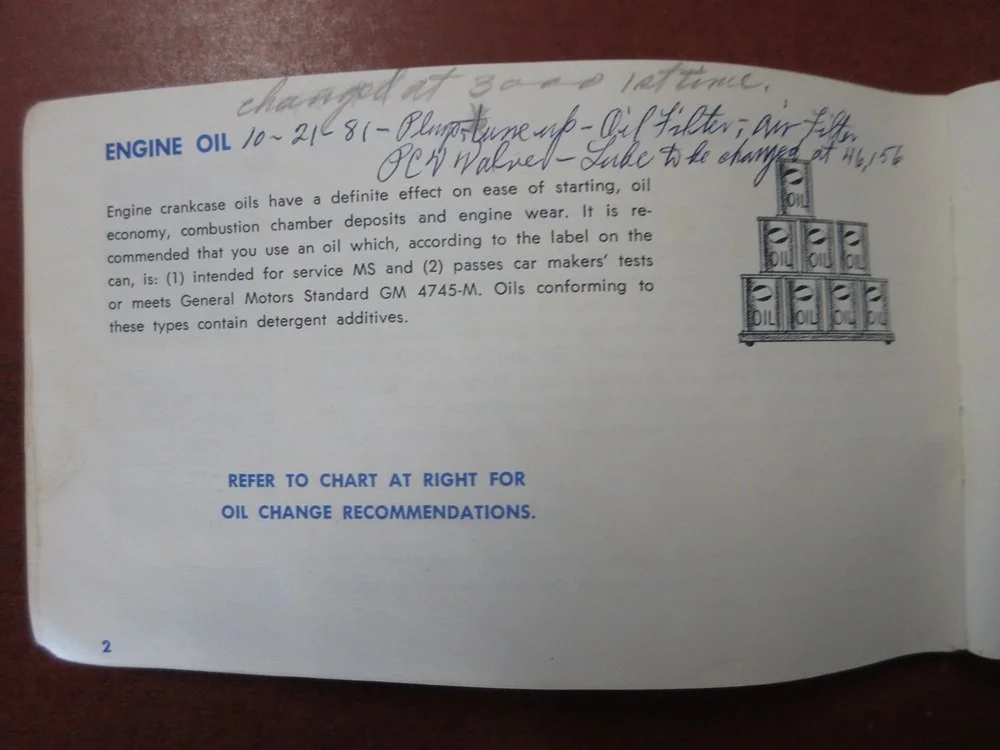 changed at 3000 1st time.
ENGINE OIL 10-21-81-Plugs, tune up - Oil Filter; Air Filter
PCV Valve - Lube to be changed at 46,156
Engine crankcase oils have a definite effect on ease of starting, oil
economy, combustion chamber deposits and engine wear. It is re-
commended that you use an oil which, according to the label on the
can, is: (1) intended for service MS and (2) passes car makers' tests
or meets General Motors Standard GM 4745-M. Oils conforming to
these types contain detergent additives.
OIL
OIL OIL OIL
OIL OIL OIL OIL
REFER TO CHART AT RIGHT FOR
OIL CHANGE RECOMMENDATIONS.
2